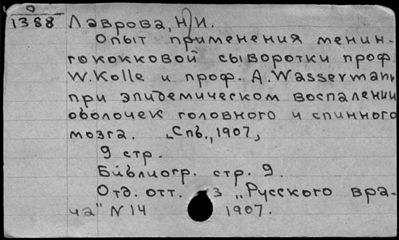 0
1388 Лаврова, Н.И.
Опыт применения менин-
гококковой сыворотки проф.
W. Kolle и проф. A. Wassermann
при эпидемическом воспалении
оболочек головного и спинного
мозга. Спб., 1907,
9 стр.
Библиогр. стр. 9.
Отд. отт. з „Русского вра-
ча" N 14 1907.